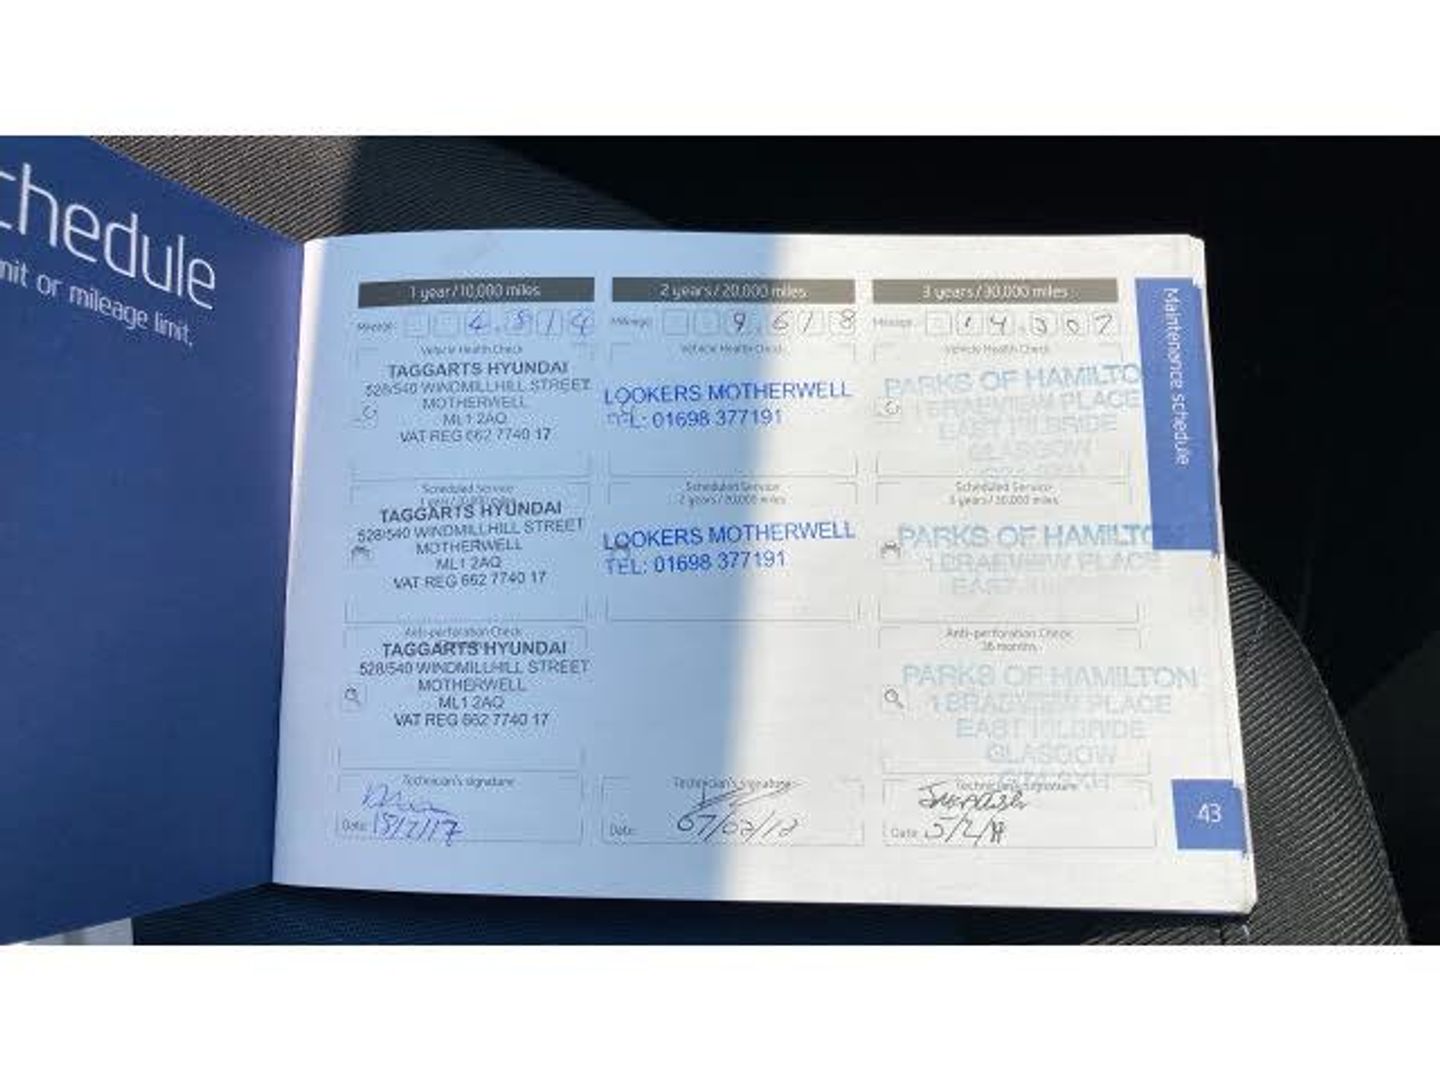 chedule
mit or mileage limit.
1 year/10,000 miles
Mileage: 4,814
Vehicle Health Check
TAGGARTS HYUNDAI
528/540 WINDMILLHILL STREET
MOTHERWELL
ML1 2AQ
VAT REG 662 7740 17
Scheduled Service
TAGGARTS HYUNDAI
528/540 WINDMILLHILL STREET
MOTHERWELL
ML1 2AQ
VAT REG 662 7740 17
Anti-perforation Check
TAGGARTS HYUNDAI
528/540 WINDMILLHILL STREET
MOTHERWELL
ML1 2AQ
VAT REG 662 7740 17
Technician's signature
Date:
2 years/20,000 miles
Mileage: 9,618
Vehicle Health Check
LOOKERS MOTHERWELL
TEL: 01698 377191
Scheduled Service
2 years/20,000 miles
LOOKERS MOTHERWELL
TEL: 01698 377191
Technician's signature
Date:
3 years/30,000 miles
Mileage: 14,307
Vehicle Health Check
PARKS OF HAMILTO
1 BRAEVIEW PLACE
EAST KILBRIDE
GLASGOW
Scheduled Service
3 years/30,000 miles
PARKS OF HAMILTO
1 BRAEVIEW PLACE
EAST
Anti-perforation Check
36 months
PARKS OF HAMILTON
1 BRAEVIEW PLACE
EAST KILBRIDE
GLASGOW
Technician's signature
Date:
Maintenance schedule
43